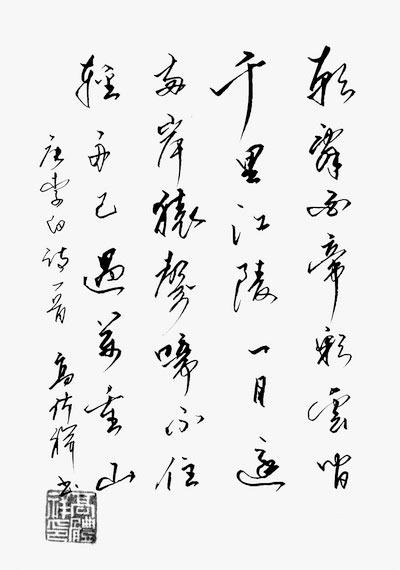 朝辭白帝彩雲間
千里江陵一日還
兩岸猿聲啼不住
輕舟已過萬重山
唐李白詩一首 高体祥书
高體祥印